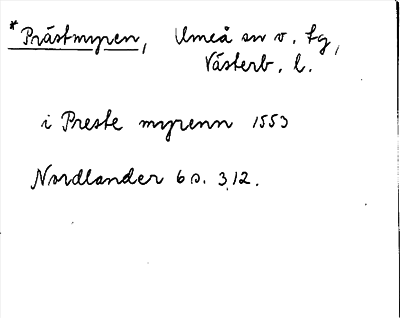 *Prästmyren, Umeå sn v. tg,
Västerb. l.
i Preste myrenn 1553
Nordlander 6 s. 312.